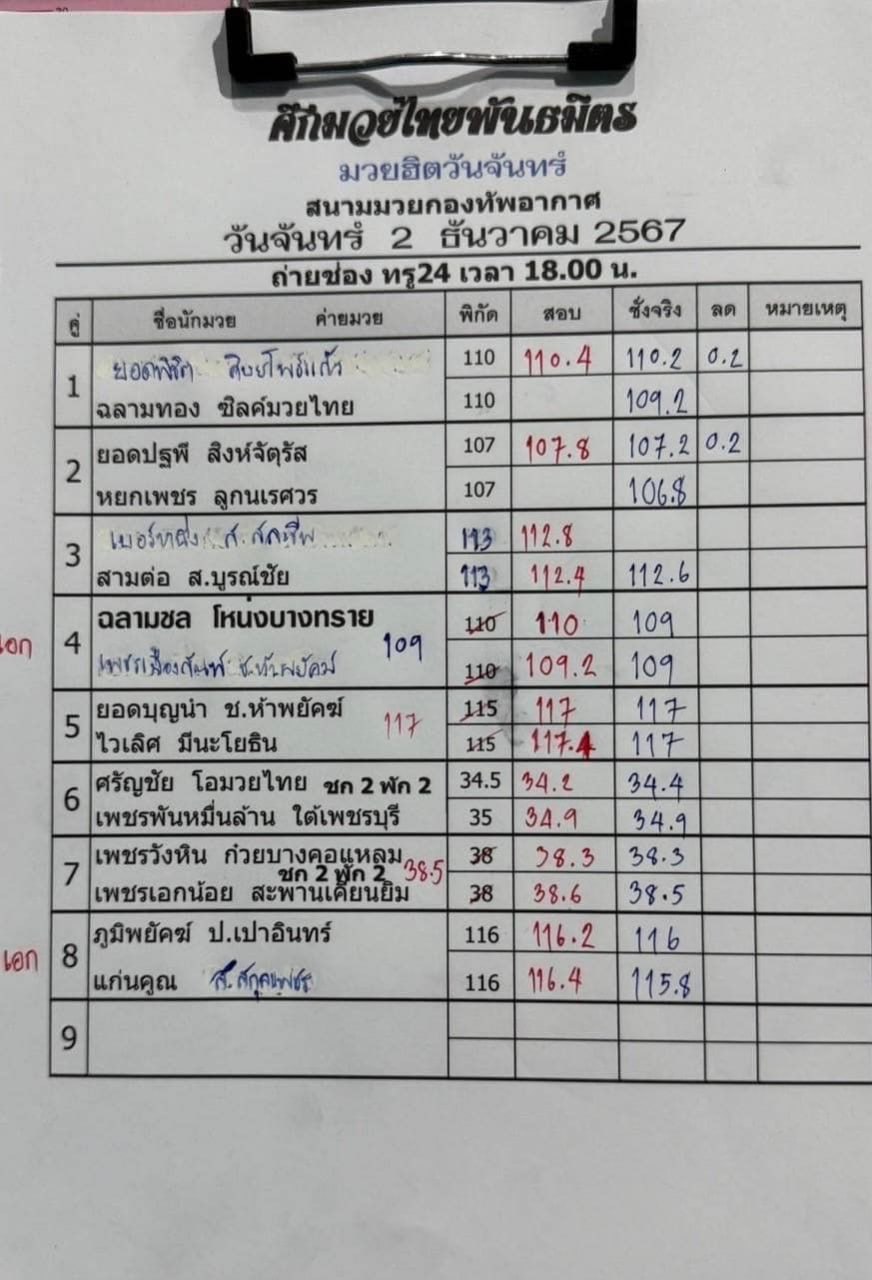 ศึกมวยไทยพันธมิตร
มวยฮิตวันจันทร์
สนามมวยกองทัพอากาศ
วันจันทร์ 2 ธันวาคม 2567
ถ่ายช่อง ทรู24 เวลา 18.00 น.
คู่ ชื่อนักมวย ค่ายมวย พิกัด สอบ ชั่งจริง ลด หมายเหตุ
1 ยอดพิชิต 110 110.4 110.2 0.2
ฉลามทอง ซิลค์มวยไทย 110 109.2
2 ยอดปฐพี สิงห์จัตุรัส 107 107.8 107.2 0.2
หยกเพชร ลูกนเรศวร 107 106.8
3 113 112.8
สามต่อ ส.บูรณ์ชัย 113 112.4 112.6
เอก 4 ฉลามชล โหน่งบางทราย 110 110 109
109 110 109.2 109
5 ยอดบุญนำ ช.ห้าพยัคฆ์ 117 115 117 117
ไวเลิศ มีนะโยธิน 115 117.4 117
6 ศรัญชัย โอมวยไทย ชก 2 พัก 2 34.5 34.2 34.4
เพชรพันหมื่นล้าน ใต้เพชรบุรี 35 34.9 34.9
7 เพชรวังหิน ก๋วยบางคอแหลม 38 38.3 38.3
ชก 2 พัก 2 38.5
เพชรเอกน้อย สะพานเคียนยิม 38 38.6 38.5
เอก 8 ภูมิพยัคฆ์ ป.เปาอินทร์ 116 116.2 116
แก่นคูณ ส.สกุลเพชร 116 116.4 115.8
9